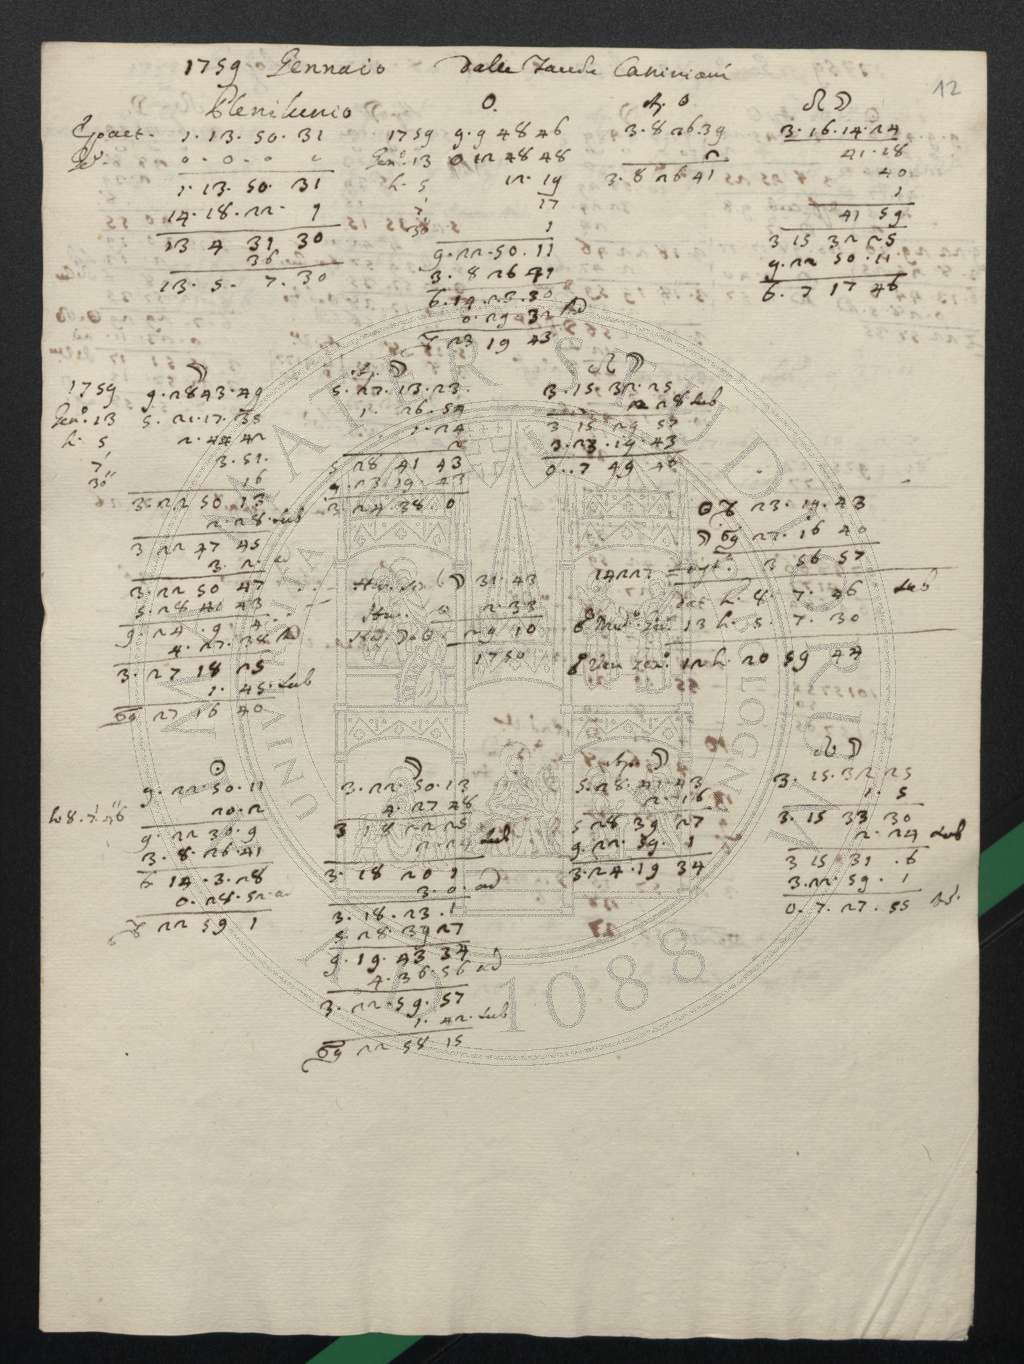 12
1759 Gennaio Dalle Tavole Cassiniane
Plenilunio
Epact. 1. 13. 50. 31
0. 0. 0 0
1. 13. 50. 31
14. 18. 22. 9
13 4 31 30
36
13. 5. 7. 30
☉.
1759 9. 9 48 46
Gen.° 13 0 12 48 48
h. 5 12. 19
7' 17
30 1
9. 22. 50. 11
3. 8 26 41
6. 14. 23. 30
0. 29. 32 ad
♑ 23 19 43
Ap. ☉
3. 8 26. 39
2
3. 8 26. 41
☊ ☽
3. 16. 14. 24
41. 28
40
1
41 59
3 15 32 25
9. 22 50. 11
6. 7 17 46
☽
1759 9. 28 43. 49
Gen.° 13 5. 21. 17. 35
h. 5 2. 44 42
7' 3. 51.
30" 16
3. 22 50 13
2. 28. sub
3 22 47 45
3. 2. ad
3. 22 50 47
5. 28 40 43
9. 24. 9. 4
4. 27. 38 ad
3. 27 18 25
1. 45. sub
♋ 27 16 40
Ap. ☽
5. 27. 13. 23.
1. 26. 54
1. 24
2
5 28 41 43
9. 23 19. 43
3 24 38. 0
☊ ☽
3. 15. 32. 25
2 28 sub
3 15 29 57
3. 23. 19. 43
0. 7 49 46
☉ ♑ 23. 19. 43
☽ ♋ 27. 16 40
3 56 57
31. 43
2. 33
29 10
dat h. 8. 7. 46 sub
13 h. 5. 7. 30
1759 12 h. 20 59 44
☉
9. 22. 50. 11
h 8. 7' 46" 20. 2
9. 22 30. 9
3. 8. 26 41
6 14. 3. 28
0. 28. 52 ad
♑ 22 59 1
☽
3. 22. 50. 13
4. 27 48
3 18 22 25
2. 24 sub
3. 18 20 1
3. 0. ad
3. 18. 23. 1
5. 28. 39 27
9. 19. 43 34
4. 36. 56 ad
3. 22. 59. 57
1. 42. sub
♋ 22 58 15
Ap. ☽
5. 28. 41. 43
2. 16
5 28 39 27
9. 22. 59. 1
3. 24. 19 34
☊ ☽
3. 15. 32 25
1. 5
3. 15 33 30
2. 24 sub
3 15 31. 6
3. 22. 59. 1
0. 7. 27. 55
ALMA MATER STUDIORUM
UNIVERSITÀ DI BOLOGNA
A.D. 1088